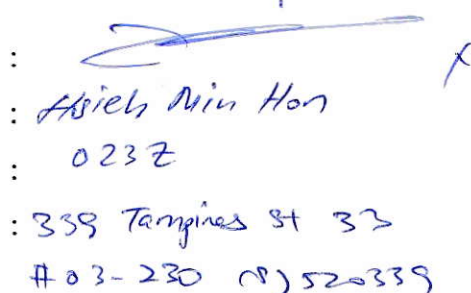 :
: Hsieh Min Hon
: 023Z
: 339 Tampines St 33
#03-230 (S) 520339